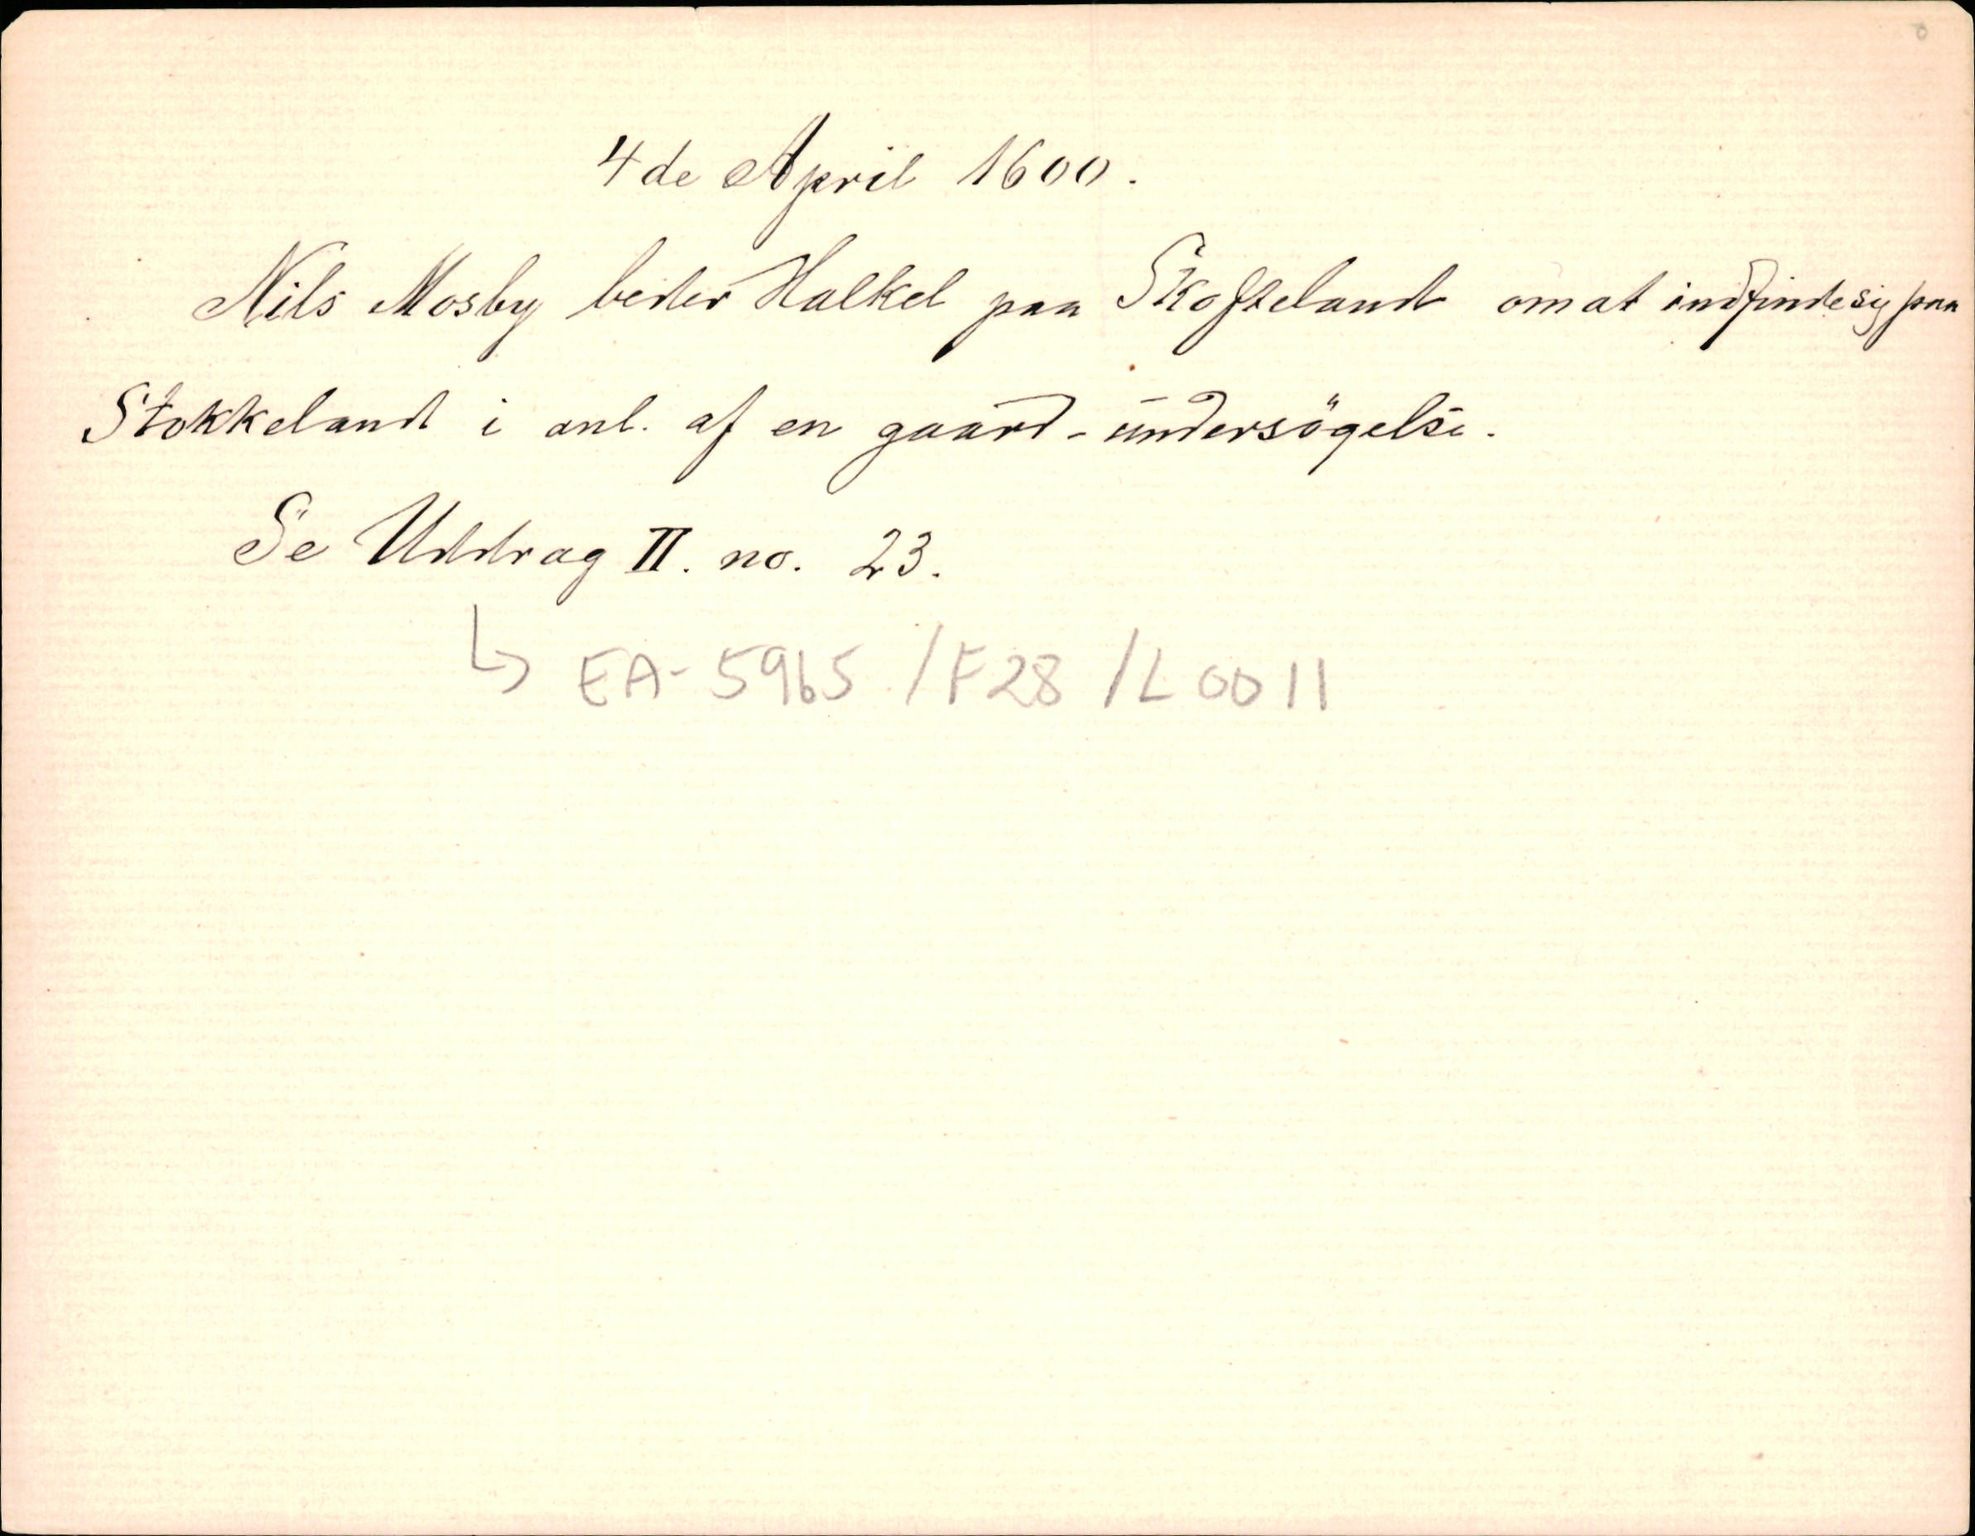 4de April 1600.
Nils Mosby beder Halkel paa Skofteland om at indfinde sig paa
Stokkeland i anl. af en gaard-undersögelse.
Se Uddrag II. no. 23.
↳ EA-5965 /F28 /L0011